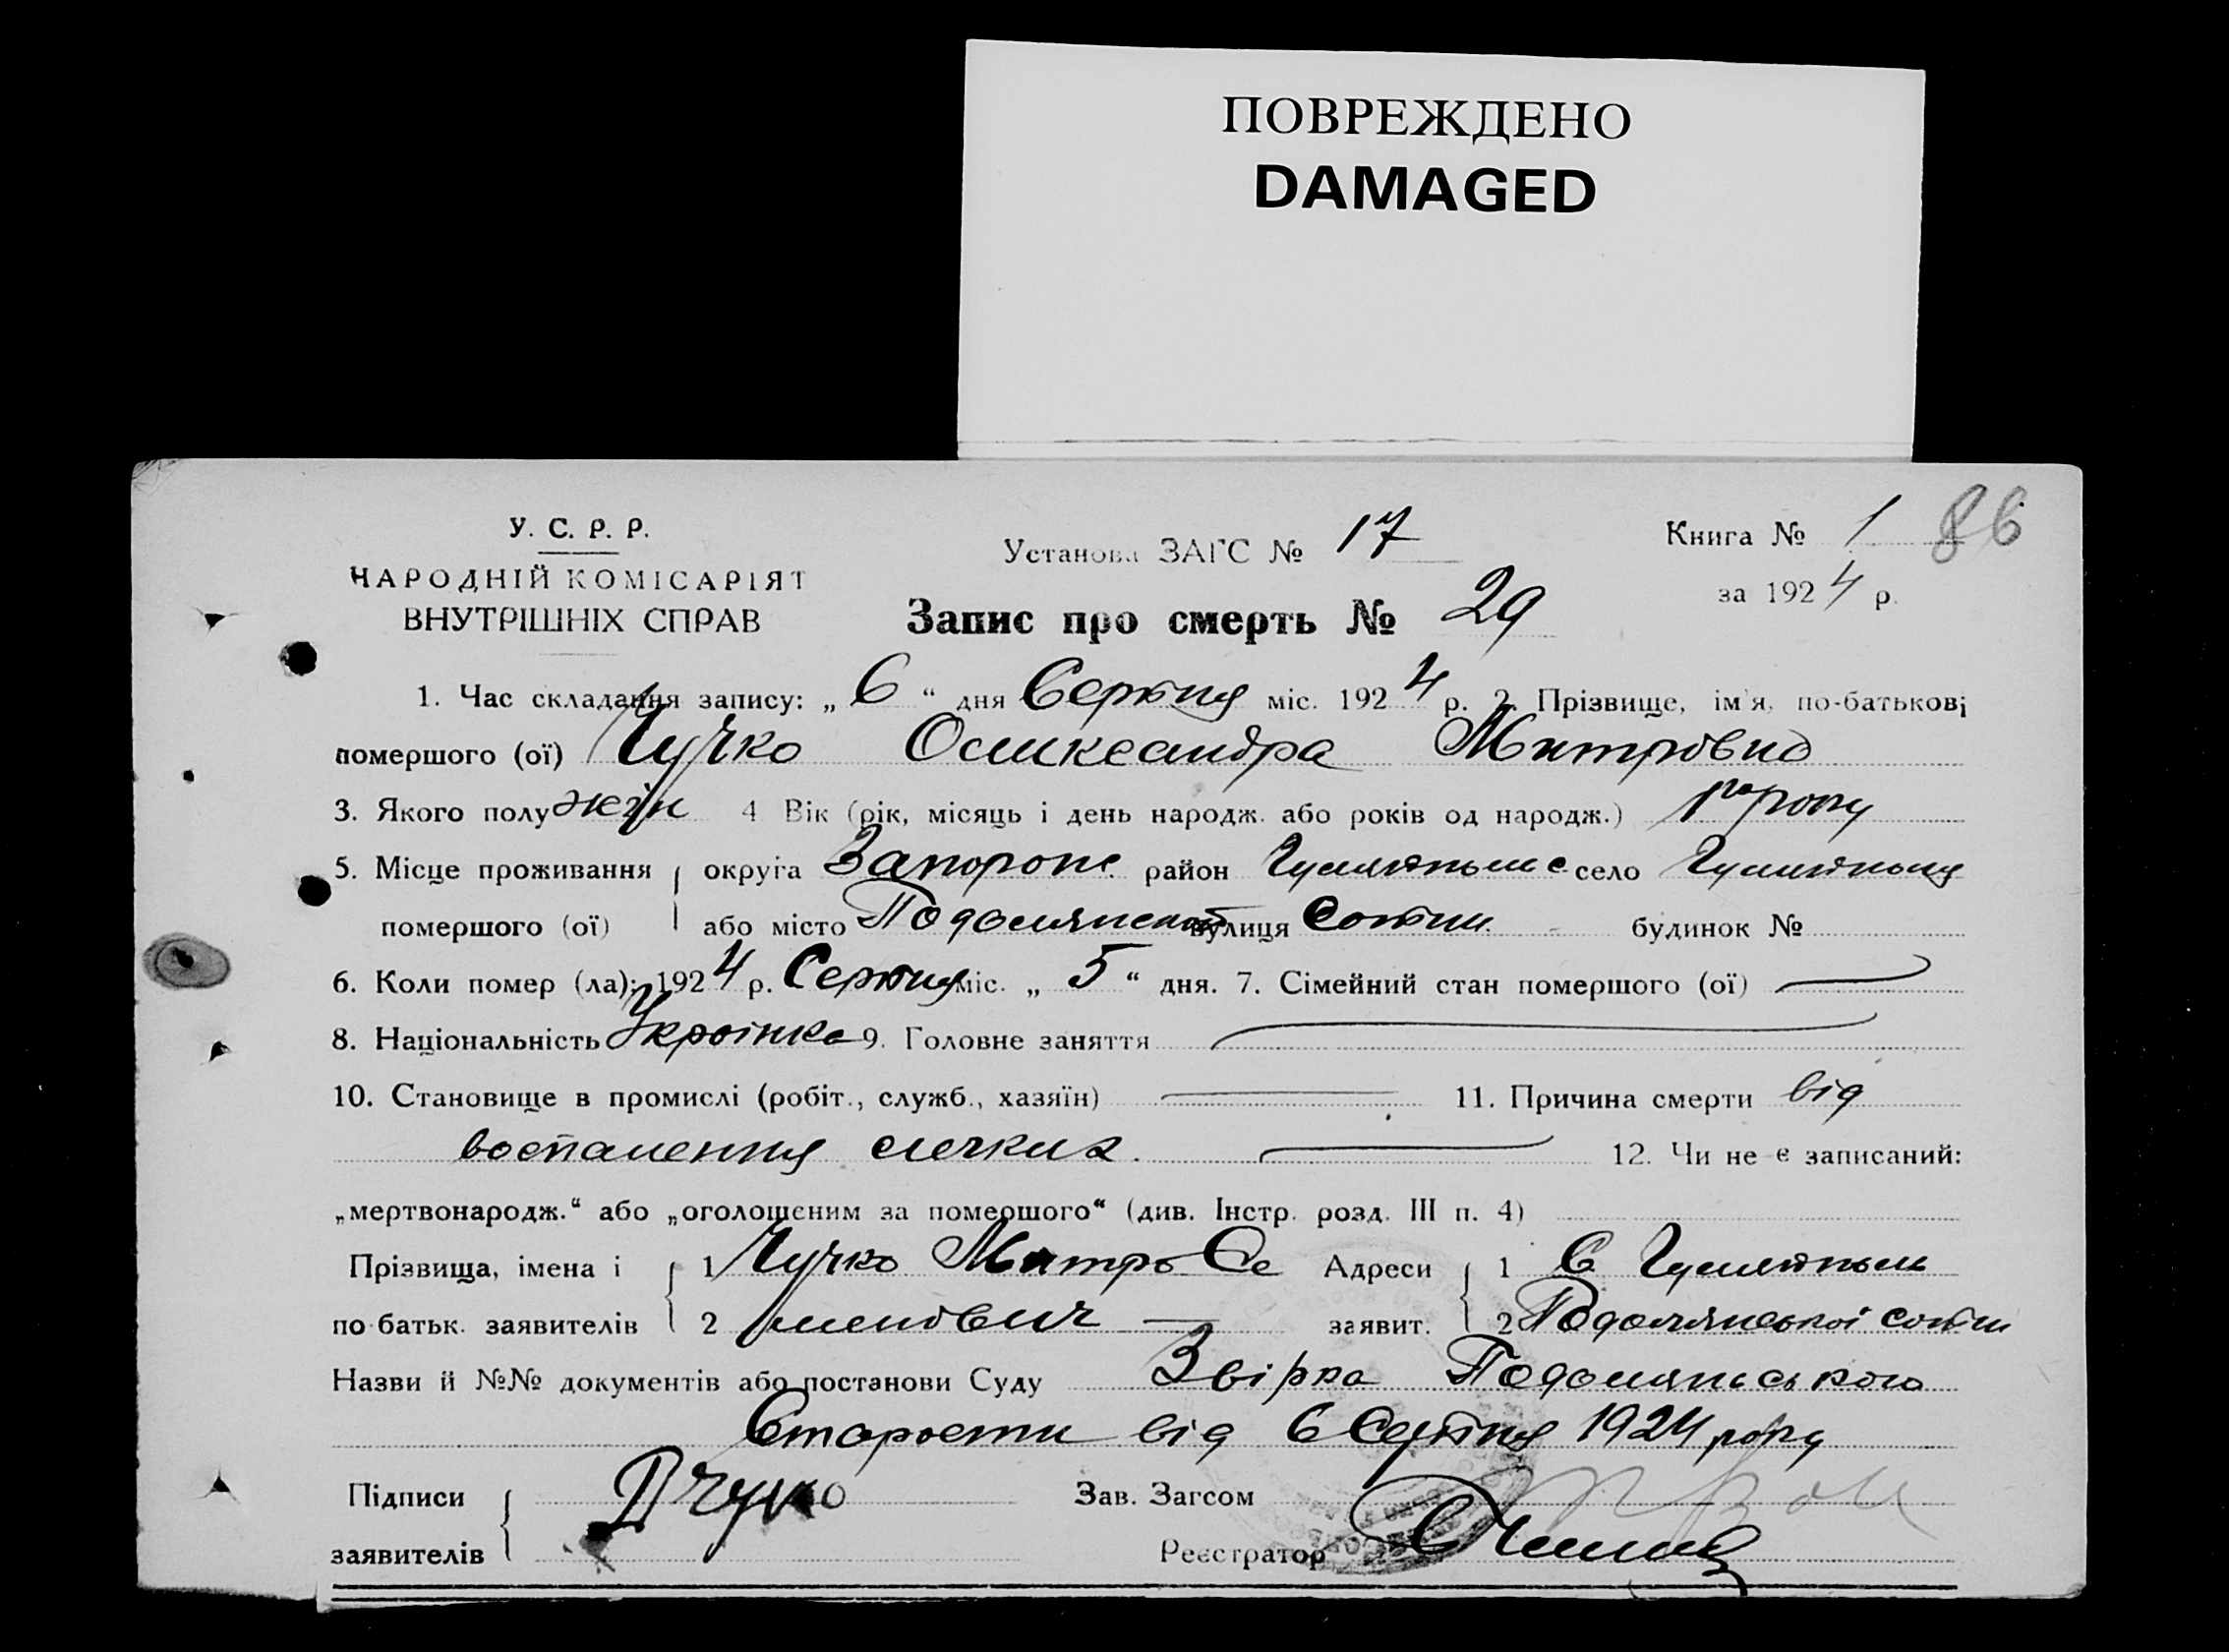 ПОВРЕЖДЕНО
DAMAGED
У. С. Р. Р.
НАРОДНІЙ КОМІСАРІЯТ
ВНУТРІШНІХ СПРАВ
Установа ЗАГС № 17
Книга № 1 86
за 1924 р.
Запис про смерть № 29
1. Час складання запису: „ 6 “ дня Серпня міс. 1924 р. 2. Прізвище, ім'я, по-батькові
помершого (ої) Чучко Олександра Митровна
3. Якого полу жін 4 Вік (рік, місяць і день народж. або років од народж.) 1го року
5. Місце проживання округа Запорож. район Гуляйпольс село Гуляйполу
помершого (ої) або місто Подолянськ вулиця Сотни будинок №
6. Коли помер (ла): 1924 р. Серпня міс. „ 5 “ дня. 7. Сімейний стан помершого (ої)
8. Національність Украінка 9. Головне заняття
10. Становище в промислі (робіт., служб., хазяїн) 11. Причина смерти від
воспалення лечких. 12. Чи не є записаний:
„мертвонародж.“ або „оголошеним за помершого“ (див. Інстр. розд. III п. 4)
Прізвища, імена і 1 Чучко Митро Се Адреси 1 С. Гуляйполь
по батьк. заявителів 2 менович заявит. 2 Подолянської сотни
Назви й №№ документів або постанови Суду Подолянського
Старости від 6 Серпня 1924 року
Підписи Чучко Зав. Загсом
заявителів Реєстратор